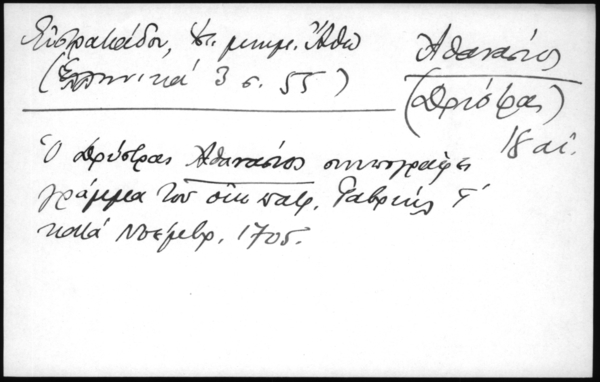 Εὐστρατιάδου, Ἱστ. μνημ. Ἄθω
(Ἑλληνικά 3 σ. 55)
Ἀθανάσιος
(Δρύστρας)
18 αἰ.
Ὁ Δρύστρας Ἀθανάσιος συνυπογράφει
γράμμα τοῦ οἰκ. πατρ. Γαβριήλ Γ´
κατά Νοέμβρ. 1705.